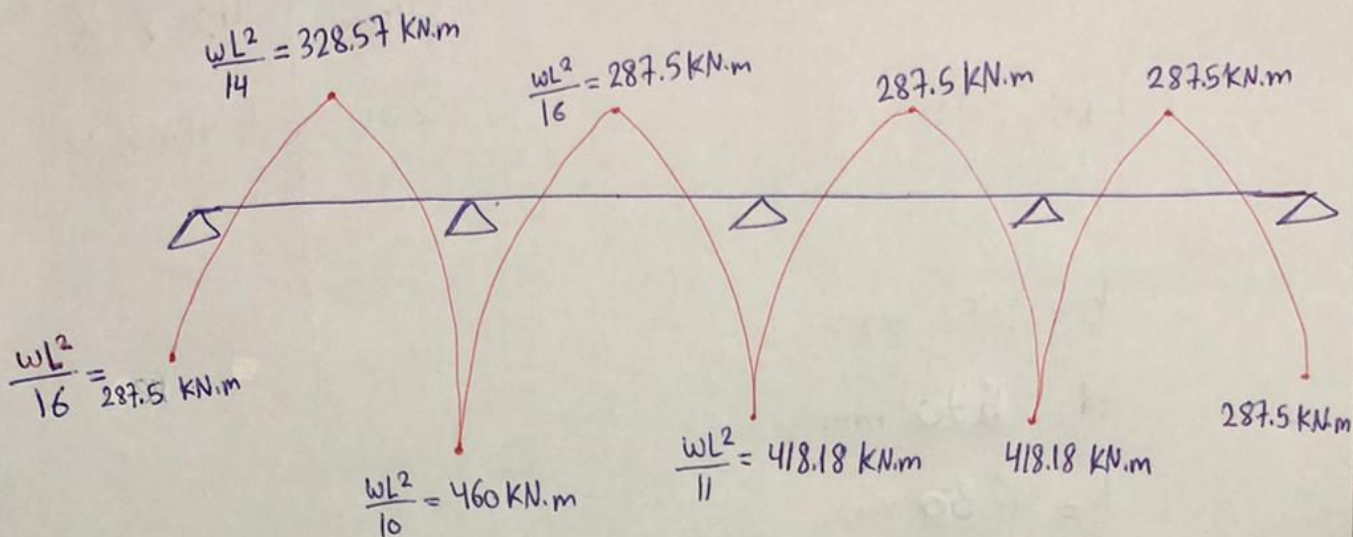 wL²/14 = 328.57 KN.m
wL²/16 = 287.5 KN.m
287.5 KN.m
287.5 KN.m
wL²/16 = 287.5 KN.m
wL²/10 = 460 KN.m
wL²/11 = 418.18 KN.m
418.18 KN.m
287.5 KN.m